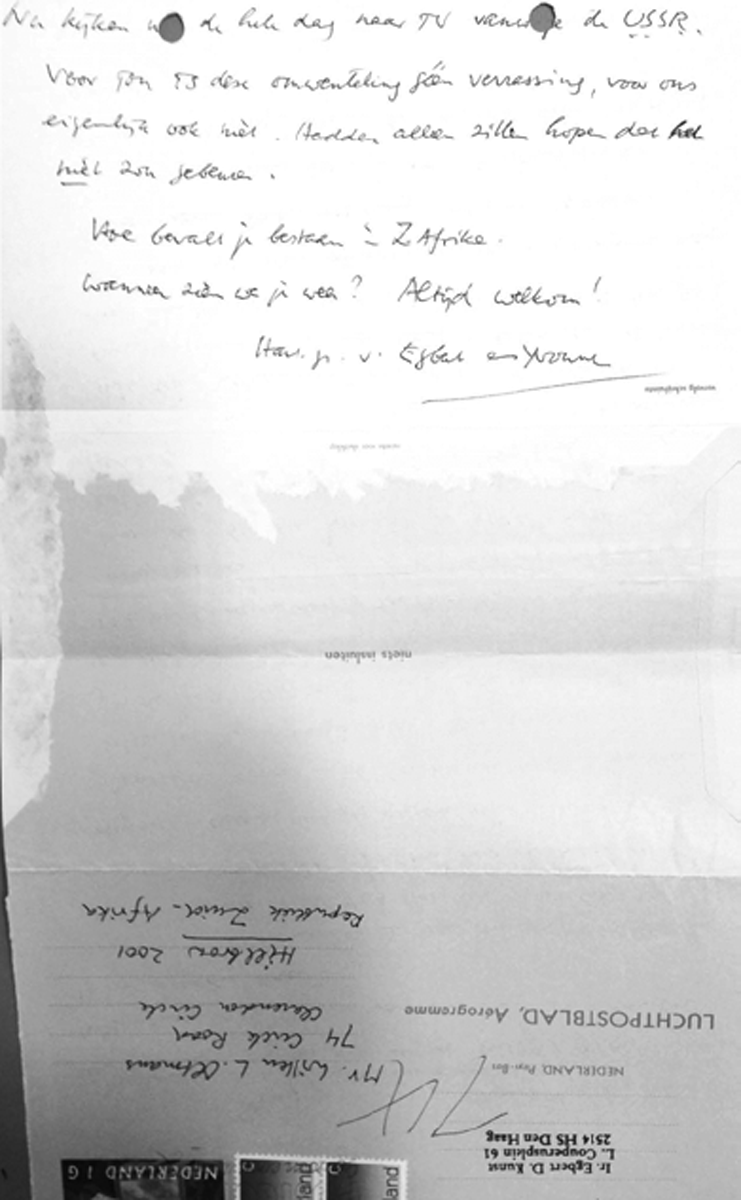 Nu kijken de hele dag naar TV vanwege de USSR.
Voor Ton is deze omwenteling géén verrassing, voor ons
eigenlijk ook niet. Hadden alleen zitten hopen dat het
niet zou gebeuren.
Hoe bevalt je bestaan in Z Afrika.
Wanneer zien we je weer? Altijd welkom!
Har. gr. v. Egbert en Yvonne
niets insluiten
LUCHTPOSTBLAD, Aérogramme
NEDERLAND, Pays-Bas
Ir. Egbert D. Kunst
L. Couperusplein 61
2514 HS Den Haag
Mr. Willem L. Oltmans
74 Road
Clarendon Circle
Hillbrow 2001
Republiek Zuid-Afrika
NEDERLAND